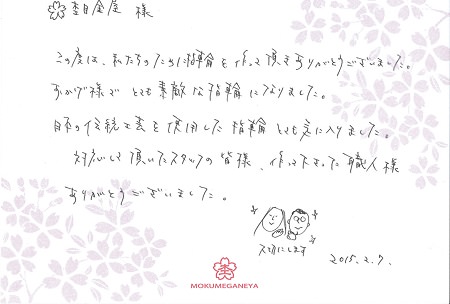 杢目金屋 様
この度は、私たちのために指輪を作って頂きありがとうございました。
おかげ様で とても 素敵な指輪になりました。
日本の伝統工芸を使用した指輪 とても気に入りました。
対応して頂いたスタッフの皆様、作って下さった職人様
ありがとうございました。
大切にします
2015.2.7.
MOKUMEGANEYA